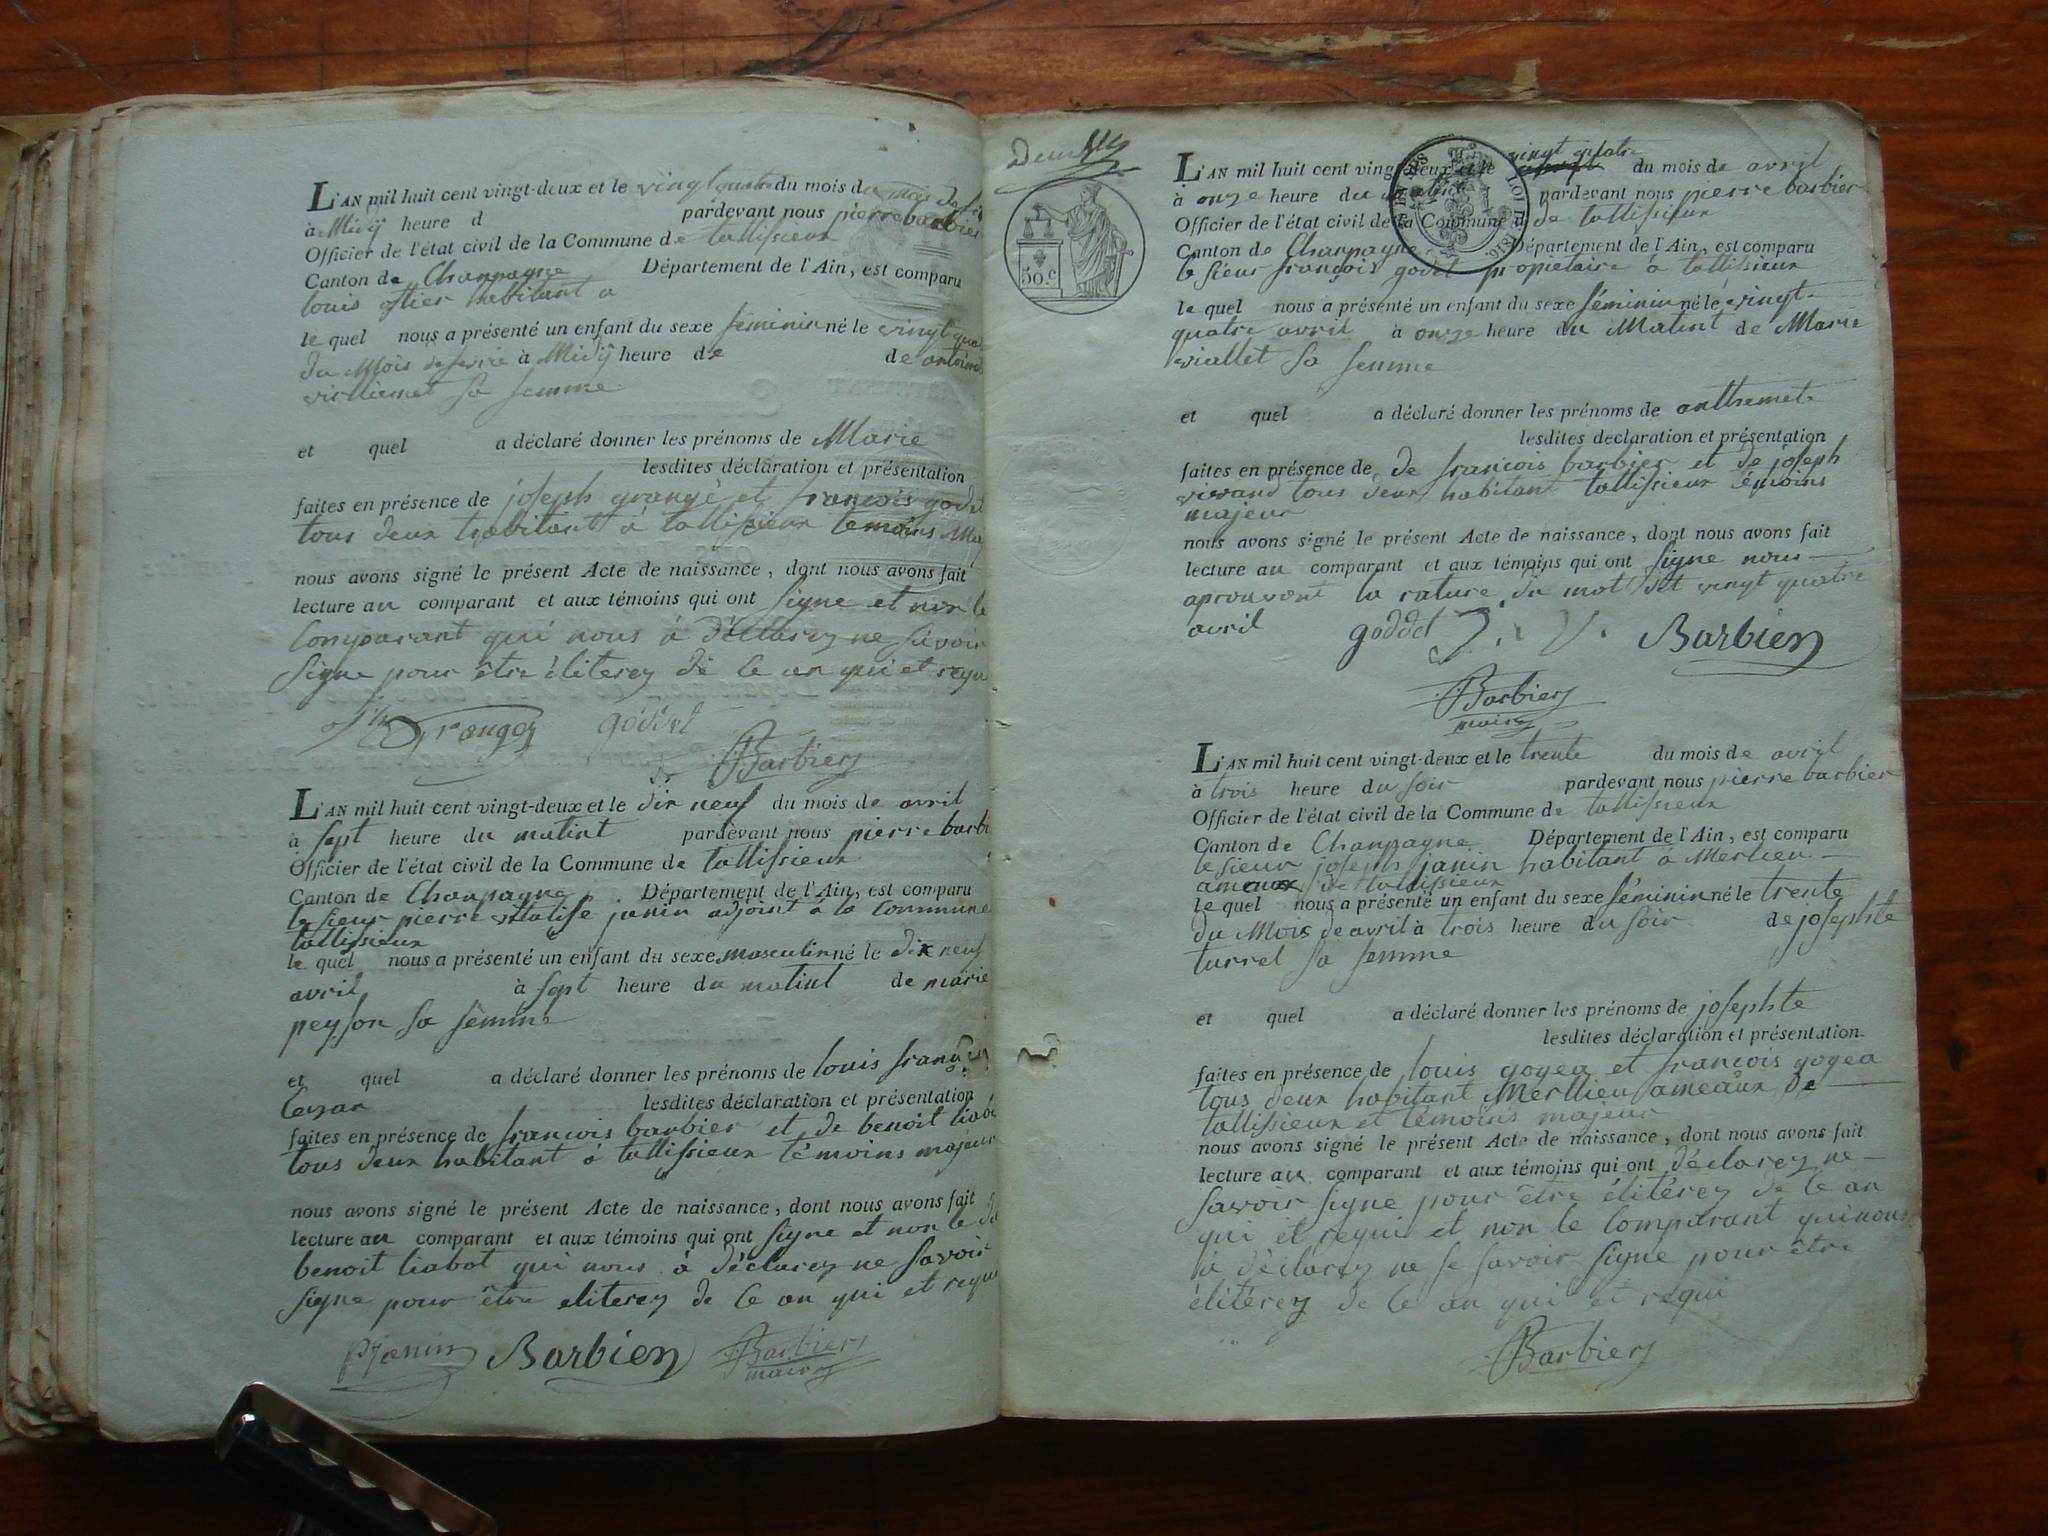 L'AN mil huit cent vingt-deux et le vingt quatre du mois de
à Midÿ heure d pardevant nous pierre barbier
Officier de l'état civil de la Commune de tallissieux
Canton de Chanpagne Département de l'Ain, est comparu
louis habitant a
le quel nous a présenté un enfant du sexe féminin né le vingt
du Mois à Midÿ heure de de
sa femme
et quel a déclaré donner les prénoms de Marie
lesdites déclaration et présentation
faites en présence de joseph et françois
tous deux habitant à tallissieux temoins
nous avons signé le présent Acte de naissance, dont nous avons fait
lecture au comparant et aux témoins qui ont signe et non le
Comparant qui nous à déclarez ne savoir
signe pour être éliterez de ce an qui et requ
goddet
Barbier
L'AN mil huit cent vingt-deux et le dix neuf du mois de avril
à sept heure du matint pardevant nous pierre barbi
Officier de l'état civil de la Commune de tallissieux
Canton de Chanpagne Département de l'Ain, est comparu
le sieur pierre janin adjoint à la Commune
tallissieux
le quel nous a présenté un enfant du sexe masculin né le dix neuf
avril à sept heure du matint de marie
peyson sa femme
et quel a déclaré donner les prénoms de louis
lesdites déclaration et présentation
faites en présence de françois barbier et de benoit
tous deux habitant à tallissieux témoins majeur
nous avons signé le présent Acte de naissance, dont nous avons fait
lecture au comparant et aux témoins qui ont signe et non le
benoit liabot qui nous à déclarez ne savoir
signe pour être eliterez de ce an qui et requ
Janin Barbier Barbier
maire
50 c
L'AN mil huit cent vingt-deux et le vingt quatre du mois de avril
à onze heure du pardevant nous pierre barbier
Officier de l'état civil de la Commune de tallissieux
Canton de Chanpagne Département de l'Ain, est comparu
le sieur françois godet propietaire à tallissieux
le quel nous a présenté un enfant du sexe féminin né le vingt-
quatre avril à onze heure du Matint de Marie
viallet sa femme
et quel a déclaré donner les prénoms de anthremet
lesdites declaration et présentation
faites en présence de de francois barbier et de joseph
tous deux habitant tallissieux témoins
majeur
nous avons signé le présent Acte de naissance, dont nous avons fait
lecture au comparant et aux témoins qui ont signe nous
aprouvont la rature du mot vingt quatre
avril goddet J. V. Barbier
Barbier
maire
L'AN mil huit cent vingt-deux et le trente du mois de avril
à trois heure du soir pardevant nous pierre barbier
Officier de l'état civil de la Commune de tallissieux
Canton de Chanpagne Département de l'Ain, est comparu
le sieur joseph janin habitant à Merlieu
ameaux de tallissieux
le quel nous a présenté un enfant du sexe féminin né le trente
du Mois de avril à trois heure du soir de josephte
turrel sa femme
et quel a déclaré donner les prénoms de josephte
lesdites déclaration et présentation.
faites en présence de louis goyea et francois goyea
tous deux habitant Merllieu ameaux de
tallissieux et témoins majeur
nous avons signé le présent Acte de naissance, dont nous avons fait
lecture au comparant et aux témoins qui ont déclarez ne
savoir signe pour être élitérez de ce an
qui et requi et non le Comparant qui nous
à déclarez ne se savoir signe pour être
élitérez de ce an qui et requi
Barbier